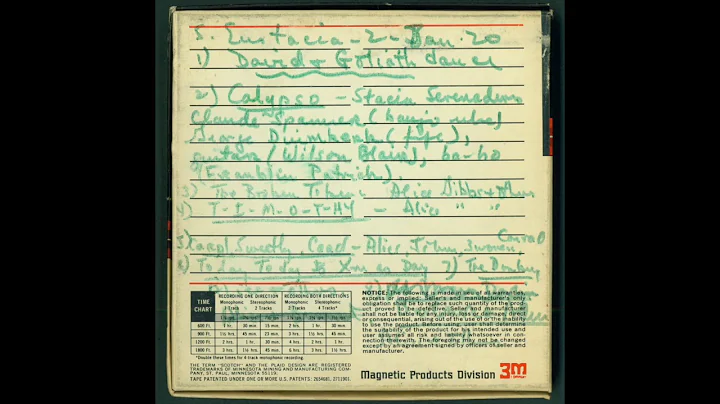 5. Eustacia - 2 - Jan. 20
1) David & Goliath dance
2) Calypso - Stacia Serenaders
Claude Spanner (banjo uke)
George (fife),
guitar (Wilson Blair), ba-ho
(Franklin Patrick).
3) The Broken Token - Alice Gibbs & others
4) T-I-M-O-T-H-Y - Alice " "
5) Sweetly, - Alice, John, 3 women, Conrad
6) Today Today Is Xmas Day 7) The
TIME CHART
RECORDING ONE DIRECTION RECORDING BOTH DIRECTIONS
Monophonic Stereophonic Monophonic Stereophonic
1 Track 2 Tracks 2 Tracks 4 Tracks*
600 Ft. 1 hr. 30 min. 15 min. 2 hrs. 1 hr. 30 min.
900 Ft. 1½ hrs. 45 min. 23 min. 3 hrs. 1½ hrs. 45 min.
1200 Ft. 2 hrs. 1 hr. 30 min. 4 hrs. 2 hrs. 1 hr.
1800 Ft. 3 hrs. 1½ hrs. 45 min. 6 hrs. 3 hrs. 1½ hrs.
*Double these times for 4-track monophonic recording
THE TERM "SCOTCH" AND THE PLAID DESIGN ARE REGISTERED
TRADEMARKS OF MINNESOTA MINING AND MANUFACTURING COM-
PANY, ST. PAUL, MINNESOTA 55119.
TAPE PATENTED UNDER ONE OR MORE U.S. PATENTS: 2654681, 2711901.
NOTICE: The following is made in lieu of all warranties,
express or implied: Seller's and manufacturer's only
obligation shall be to replace such quantity of the prod-
uct proved to be defective. Seller and manufacturer
shall not be liable for any injury, loss or damage, direct
or consequential, arising out of the use of or the inability
to use the product. Before using, user shall determine
the suitability of the product for his intended use and
user assumes all risk and liability whatsoever in con-
nection therewith. The foregoing may not be changed
except by an agreement signed by officers of seller and
manufacturer.
Magnetic Products Division 3M